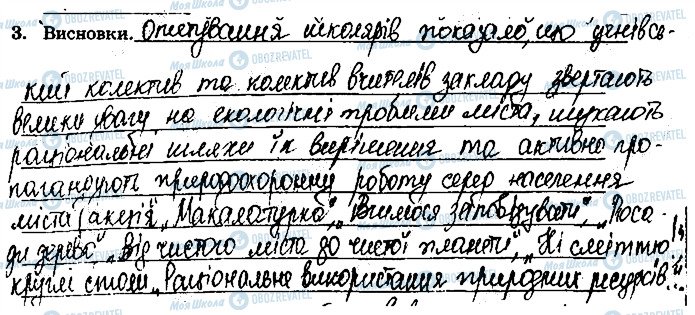 3. Висновки. Опитування школярів показало, що учнівсь-
кий колектив та колектив вчителів закладу звертають
велику увагу на екологічні проблеми міста, шукають
раціональні шляхи їх вирішення та активно про-
пагандують природоохоронну роботу серед населення
міста (акція „Макалатурка", „Вчимося заповідувати", „Поса-
ди дерево" „Від чистого міста до чистої планети", „Ні сміттю",
круглі столи „Раціональне використання природних ресурсів"